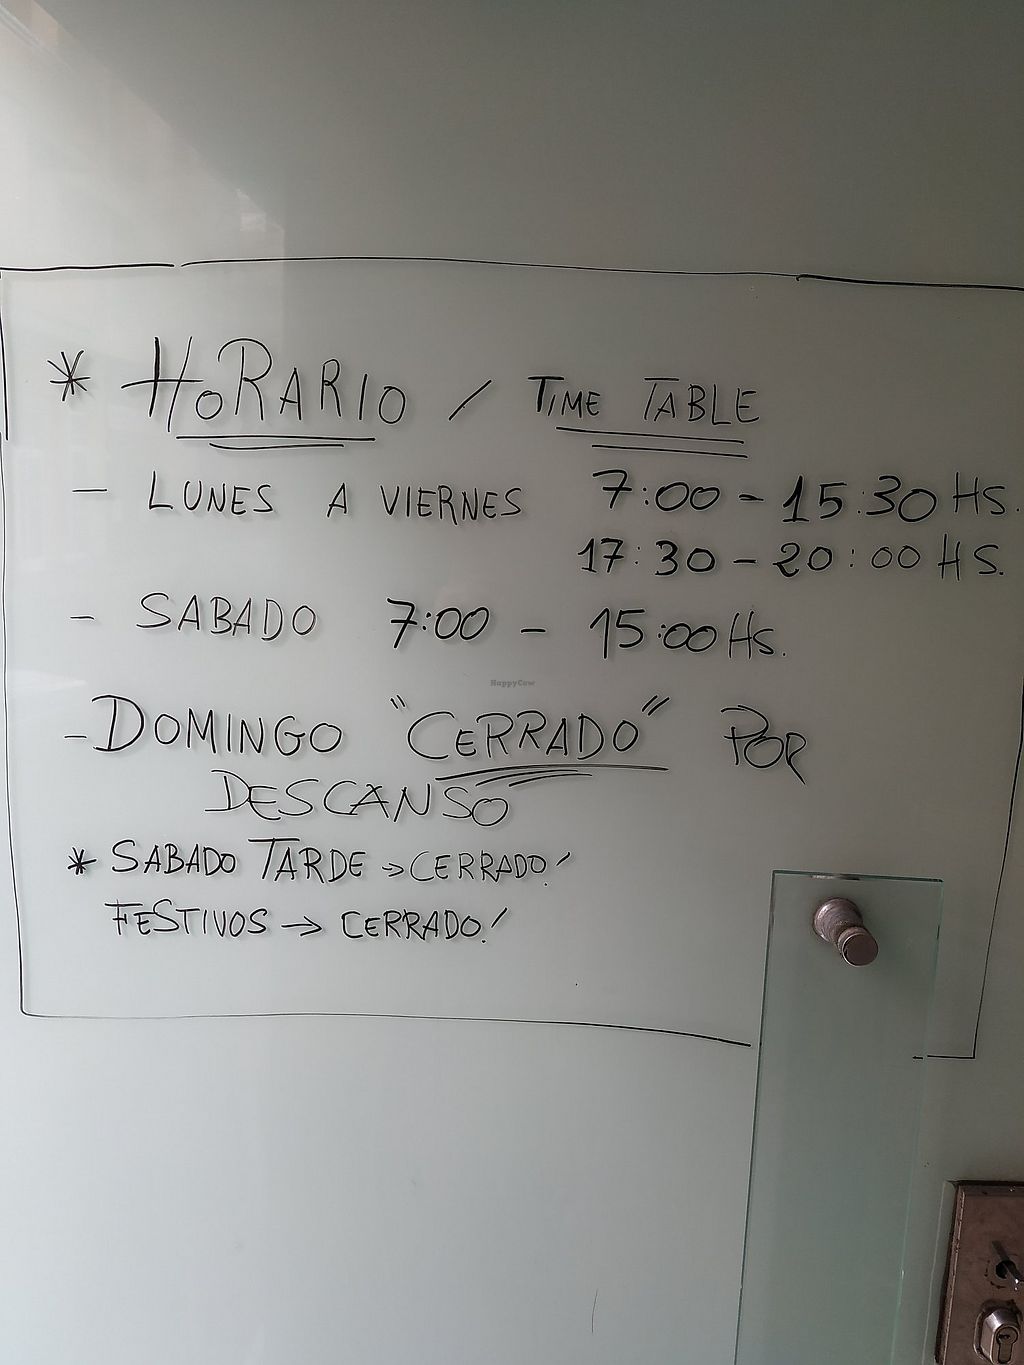 * HORARIO / TIME TABLE
- LUNES A VIERNES 7:00 - 15:30 HS.
17:30 - 20:00 HS.
- SABADO 7:00 - 15:00 Hs.
- DOMINGO "CERRADO" POR
DESCANSO
* SABADO TARDE -> CERRADO!
FESTIVOS -> CERRADO!
HappyCow